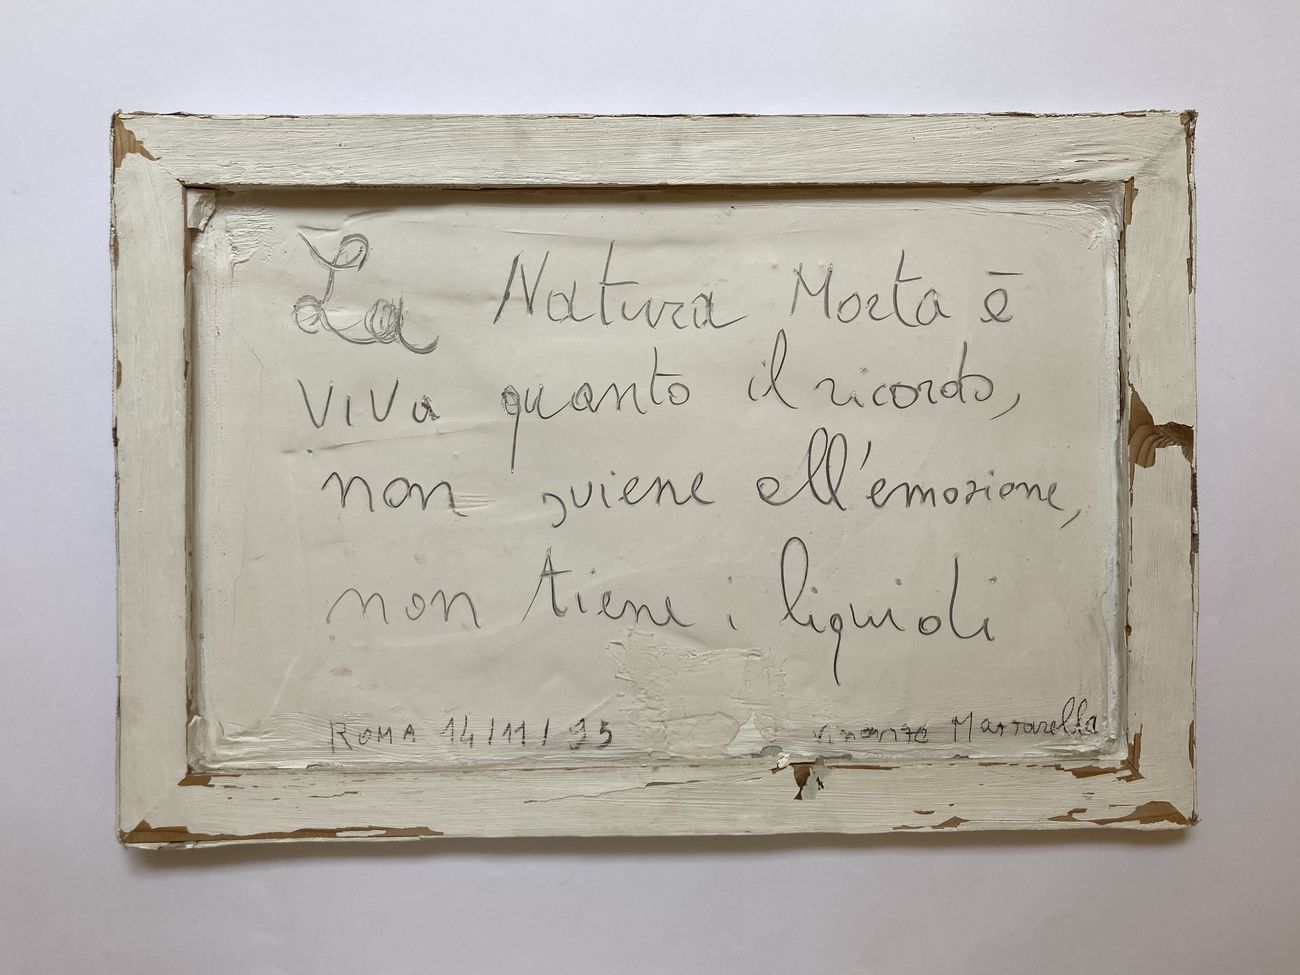 La Natura Morta ē
viva quanto il ricordo,
non sviene all'emozione,
non tiene i liquidi
ROMA 14/11/95